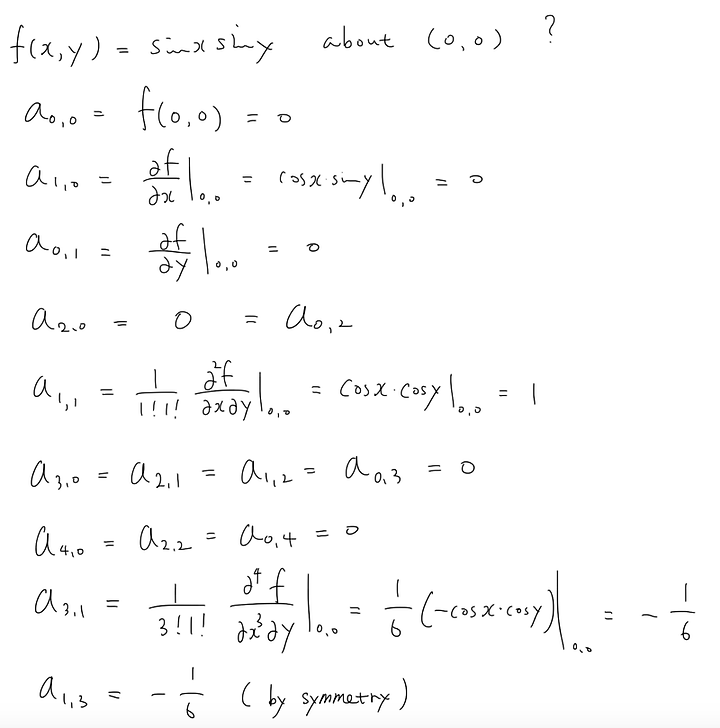 f(x,y) = sinx siny about (0,0) ?
a₀,₀ = f(0,0) = 0
a₁,₀ = ∂f/∂x |₀,₀ = cosx·siny |₀,₀ = 0
a₀,₁ = ∂f/∂y |₀,₀ = 0
a₂,₀ = 0 = a₀,₂
a₁,₁ = 1/(1!1!) ∂²f/∂x∂y |₀,₀ = cosx·cosy |₀,₀ = 1
a₃,₀ = a₂,₁ = a₁,₂ = a₀,₃ = 0
a₄,₀ = a₂,₂ = a₀,₄ = 0
a₃,₁ = 1/(3!1!) ∂⁴f/∂x³∂y |₀,₀ = 1/6 (-cosx·cosy) |₀,₀ = - 1/6
a₁,₃ = - 1/6 (by symmetry)